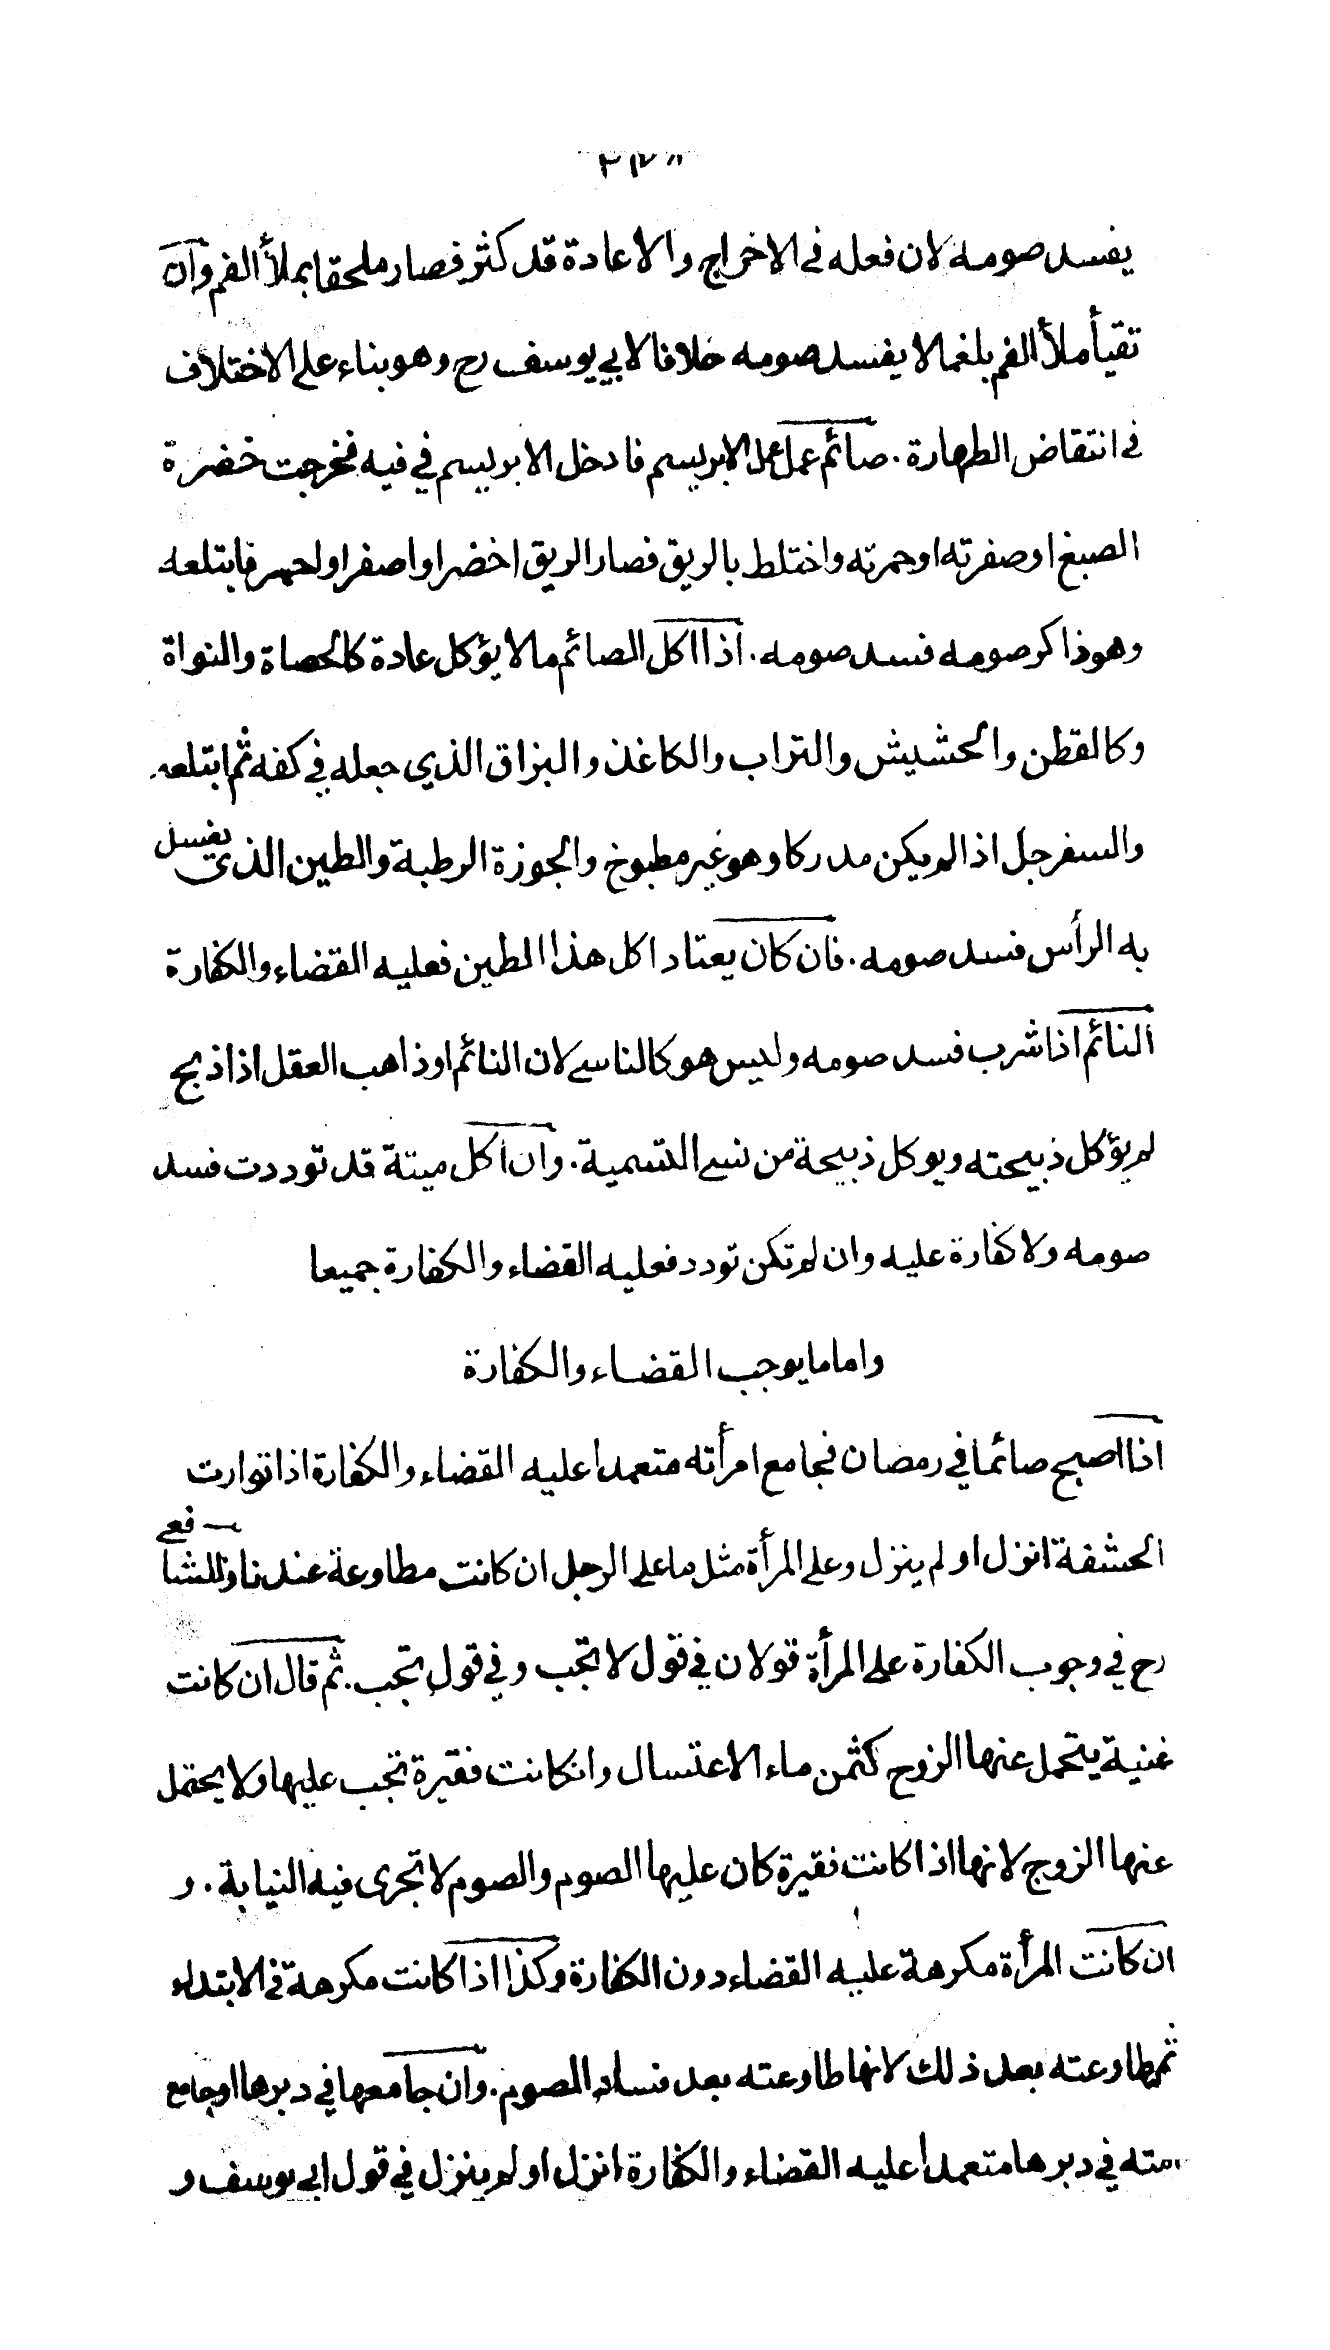 يفسد صومه لان فعله في الاخراج والاعادة قد كثر فصار ملحقا بملأ الفم وان
تقيأ ملأ الفم بلغما لا يفسد صومه خلافا لابي يوسف رح وهو بناء على الاختلاف
في انتقاض الطهارة. صائم عمل عمل الابريسم فادخل الابريسم في فيه فخرجت خضرة
الصبغ او صفرته او حمرته واختلط بالريق فصار الريق اخضر او اصفر او احمر فابتلعه
وهو ذاكر صومه فسد صومه. اذا اكل الصائم ما لا يؤكل عادة كالحصاة والنواة
وكالقطن والحشيش والتراب والكاغذ والبزاق الذي جعله في كفه ثم ابتلعه
والسفرجل اذا لم يكن مدركا وهو غير مطبوخ والجوزة الرطبة والطين الذي يغسل
به الرأس فسد صومه. فان كان يعتاد اكل هذا الطين فعليه القضاء والكفارة
النائم اذا شرب فسد صومه وليس هو كالناسي لان النائم او ذاهب العقل اذا ذبح
لم يؤكل ذبيحته ويوكل ذبيحة من نسي التسمية. وان اكل ميتة قد توددت فسد
صومه ولا كفارة عليه وان لم تكن تودد فعليه القضاء والكفارة جميعا
واما ما يوجب القضاء والكفارة
اذا اصبح صائما في رمضان فجامع امرأته متعمدا عليه القضاء والكفارة اذا توارت
الحشفة انزل او لم ينزل وعلى المرأة مثل ما على الرجل ان كانت مطاوعة عندنا وللشافعي
رح في وجوب الكفارة على المرأة قولان في قول لا تجب وفي قول تجب. ثم قال ان كانت
غنية يتحمل عنها الزوج كثمن ماء الاغتسال وانكانت فقيرة تجب عليها ولا يحتمل
عنها الزوج لانها اذا كانت فقيرة كان عليها الصوم والصوم لا تجرى فيه النيابة. و
ان كانت المرأة مكرهة عليه القضاء دون الكفارة وكذا اذا كانت مكرهة في الابتداء
ثم طاوعته بعد ذلك لانها طاوعته بعد فساد الصوم. وان جامعها في دبرها او جامع
امته في دبرها متعمدا عليه القضاء والكفارة انزل او لم ينزل في قول ابي يوسف و